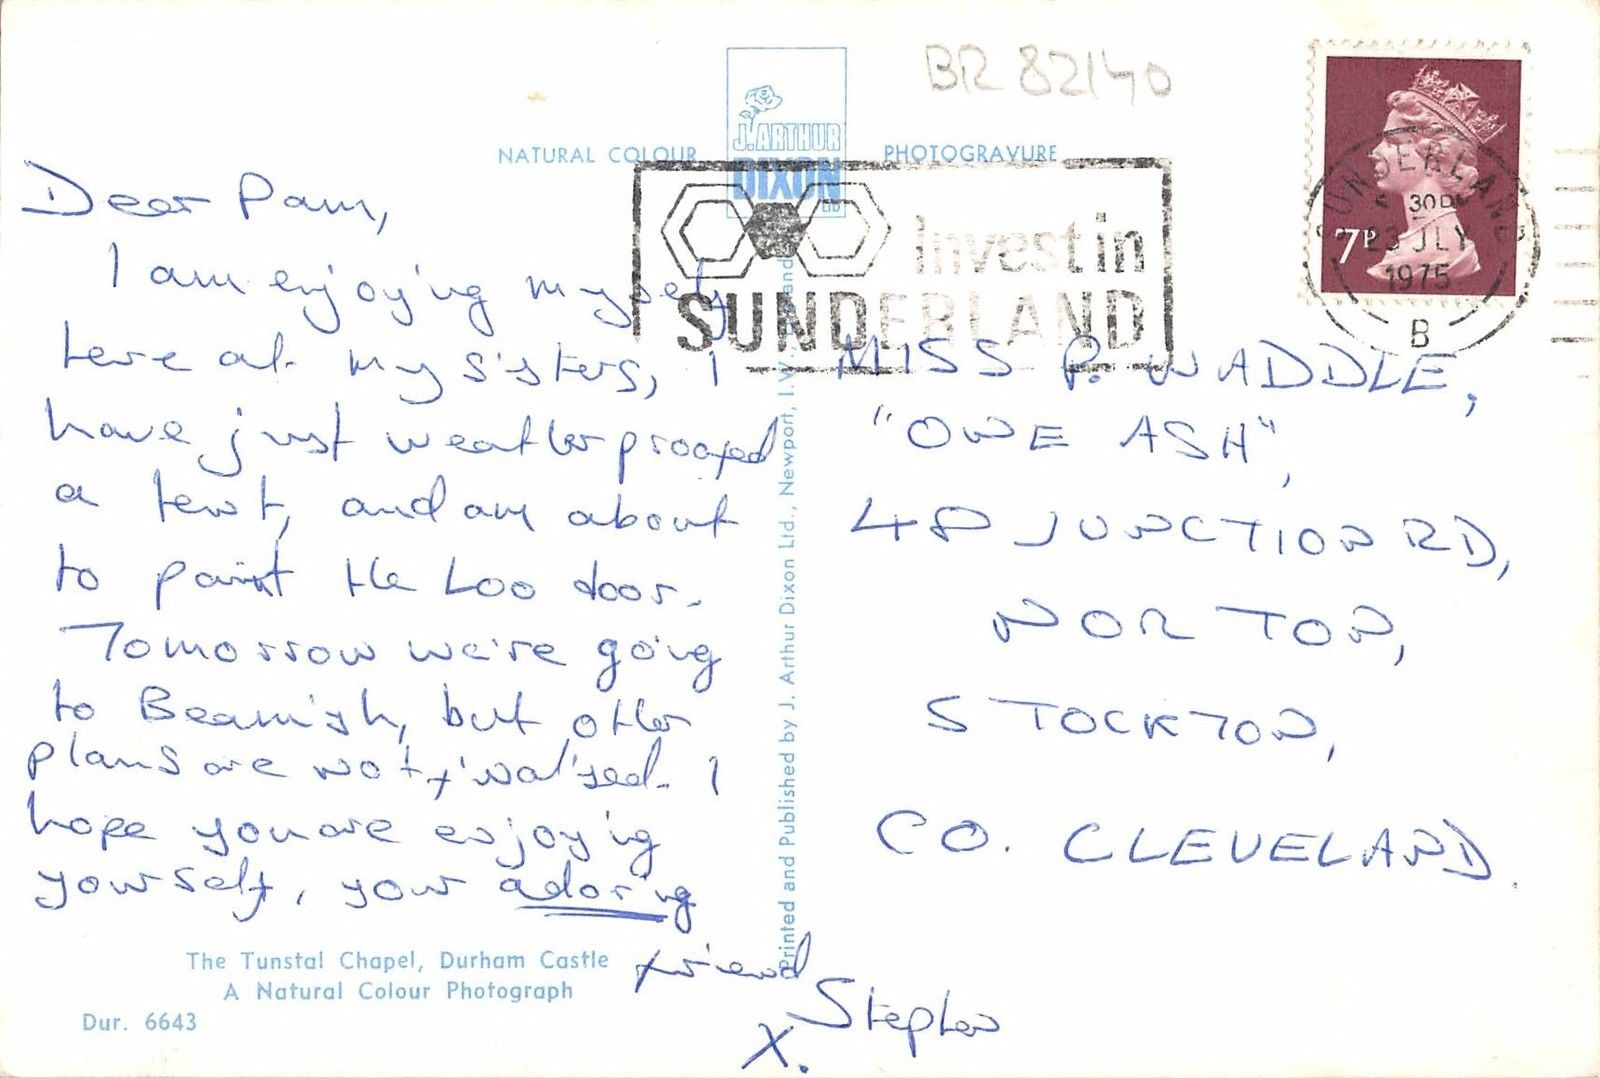 BR 82/40
NATURAL COLOUR
J. ARTHUR
DIXON
PHOTOGRAVURE
Invest in
SUNDERLAND
SUNDERLAND
30 PM
23 JLY
1975
B
7P
Dear Pam,
I am enjoying myself
here at my sisters, I
have just weatherproofed
a tent, and am about
to paint the Loo door.
Tomorrow we're going
to Beamish, but other
plans are not finalised. I
hope you are enjoying
yourself, your adoring
friend
Stephen
X.
MISS P. WADDLE,
"OWE ASH",
48 JUNCTION RD,
NORTON,
STOCKTON,
CO. CLEVELAND.
Printed and Published by J. Arthur Dixon Ltd., Newport, I.W.,
The Tunstal Chapel, Durham Castle
A Natural Colour Photograph
Dur. 6643